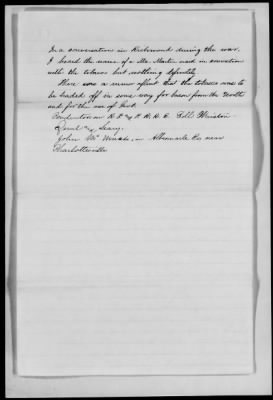 In a conversation in Richmond during the war.
I heard the name of a Mr Martin used in connection
with the tobacco but nothing definitely
There was a rumor afloat that the tobacco was to
be traded off in some way for bacon from the North
and for the use of Govt
Conductor on R. F. & P. R. R. E. Fell Winston
Daniel &
John Mc in Albemarle Co near
Charlottesville